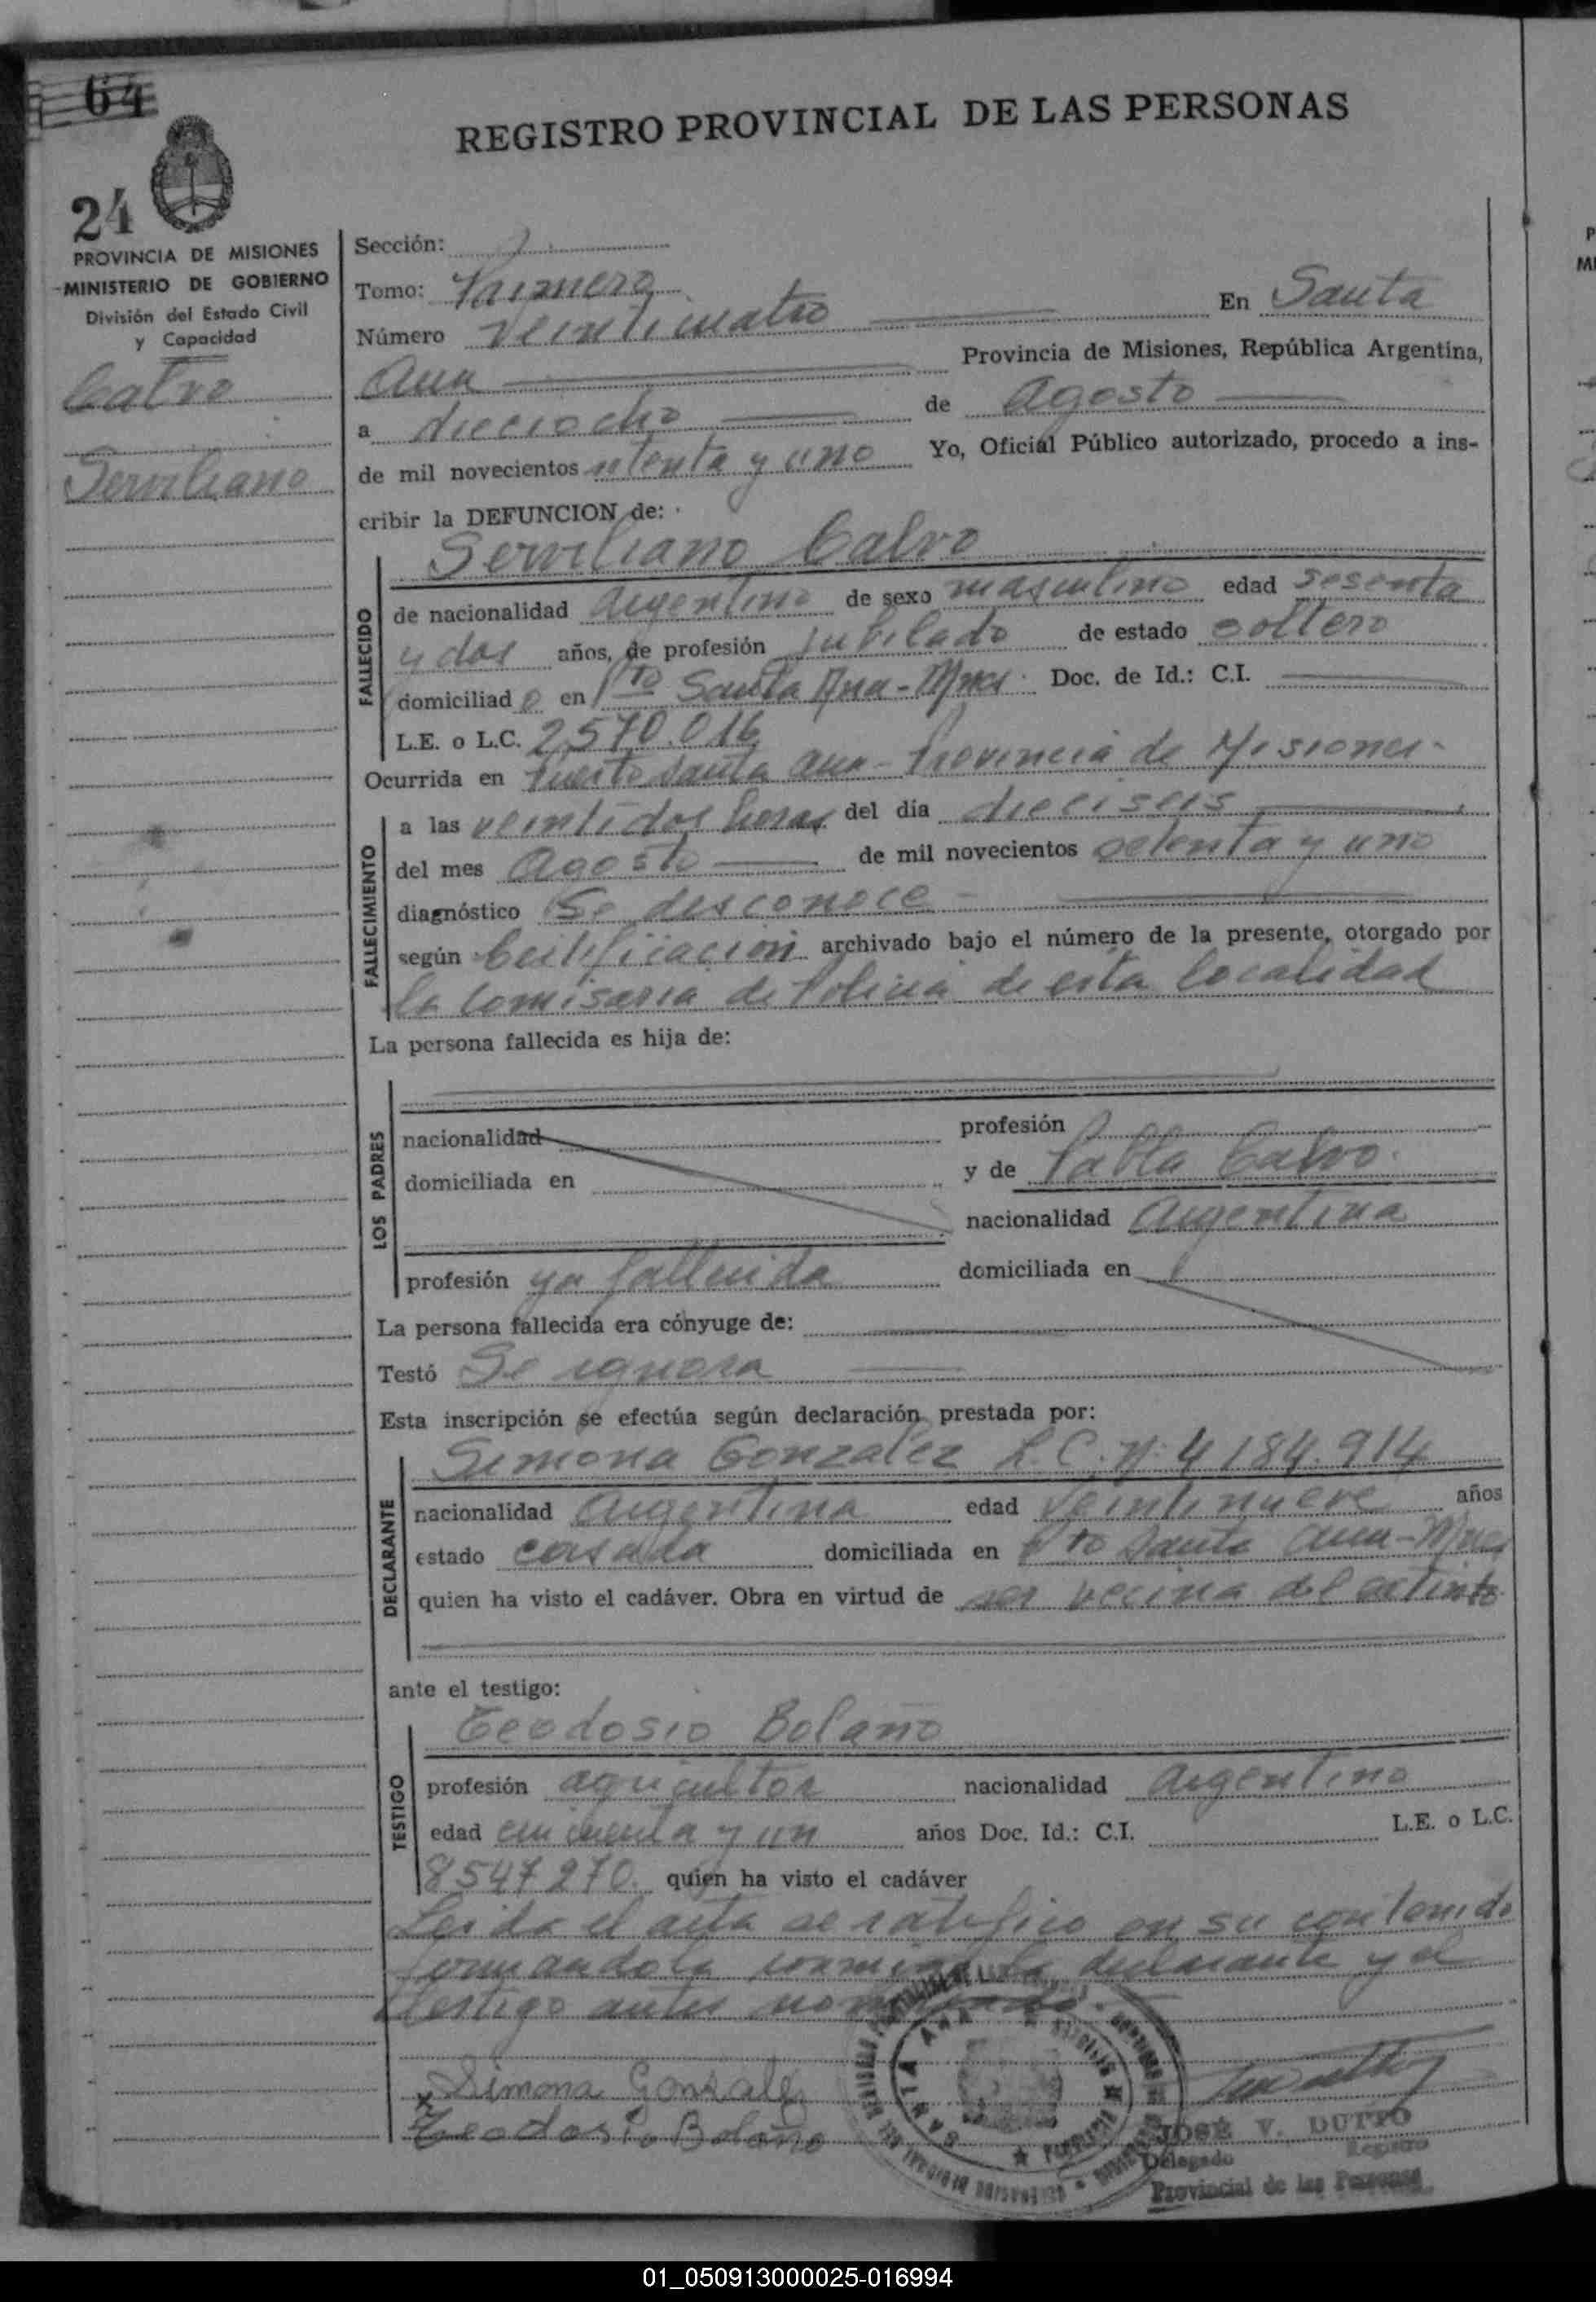 64
REGISTRO PROVINCIAL DE LAS PERSONAS
24
PROVINCIA DE MISIONES
MINISTERIO DE GOBIERNO
División del Estado Civil
y Capacidad
Calvo
Serviliano
Sección:
Tomo: Primero
Número veinticuatro En Santa
Ana Provincia de Misiones, República Argentina,
a dieciocho de agosto
de mil novecientos setenta y uno Yo, Oficial Público autorizado, procedo a ins-
cribir la DEFUNCION de:
Serviliano Calvo
FALLECIDO
de nacionalidad argentino de sexo masculino edad sesenta
y dos años, de profesión jubilado de estado soltero
domiciliado en Pto Santa Ana - Mnes. Doc. de Id.: C.I.
L.E. o L.C. 2570.016
Ocurrida en Puerto Santa Ana - Provincia de Misiones-
FALLECIMIENTO
a las veintidos horas del día dieciseis
del mes Agosto de mil novecientos setenta y uno
diagnóstico Se desconoce -
según Certificación archivado bajo el número de la presente, otorgado por
la Comisaria de Policia de esta localidad
La persona fallecida es hija de:
LOS PADRES
nacionalidad profesión
domiciliada en y de Pabla Calvo.
nacionalidad argentina
profesión ya fallecida domiciliada en
La persona fallecida era cónyuge de:
Testó Se ignora
Esta inscripción se efectúa según declaración prestada por:
Simona Gonzalez L.C. Nº 4184.914
DECLARANTE
nacionalidad argentina edad veintinueve años
estado casada domiciliada en Pto Santa Ana - Mnes
quien ha visto el cadáver. Obra en virtud de ser vecina del extinto
ante el testigo:
Teodosio Bolaño
TESTIGO
profesión agricultor nacionalidad argentino
edad cincuenta y un años Doc. Id.: C.I. L.E. o L.C.
8547270. quien ha visto el cadáver
Leida el acta se ratifico en su contenido
firmandola conmigo la declarante y el
testigo antes nombrado.-
Simona Gonzalez
x Teodosio Bolaño
SANTA ANA
JOSÉ V. DUTTO
Delegado Registro
Provincial de las Personas
01_050913000025-016994